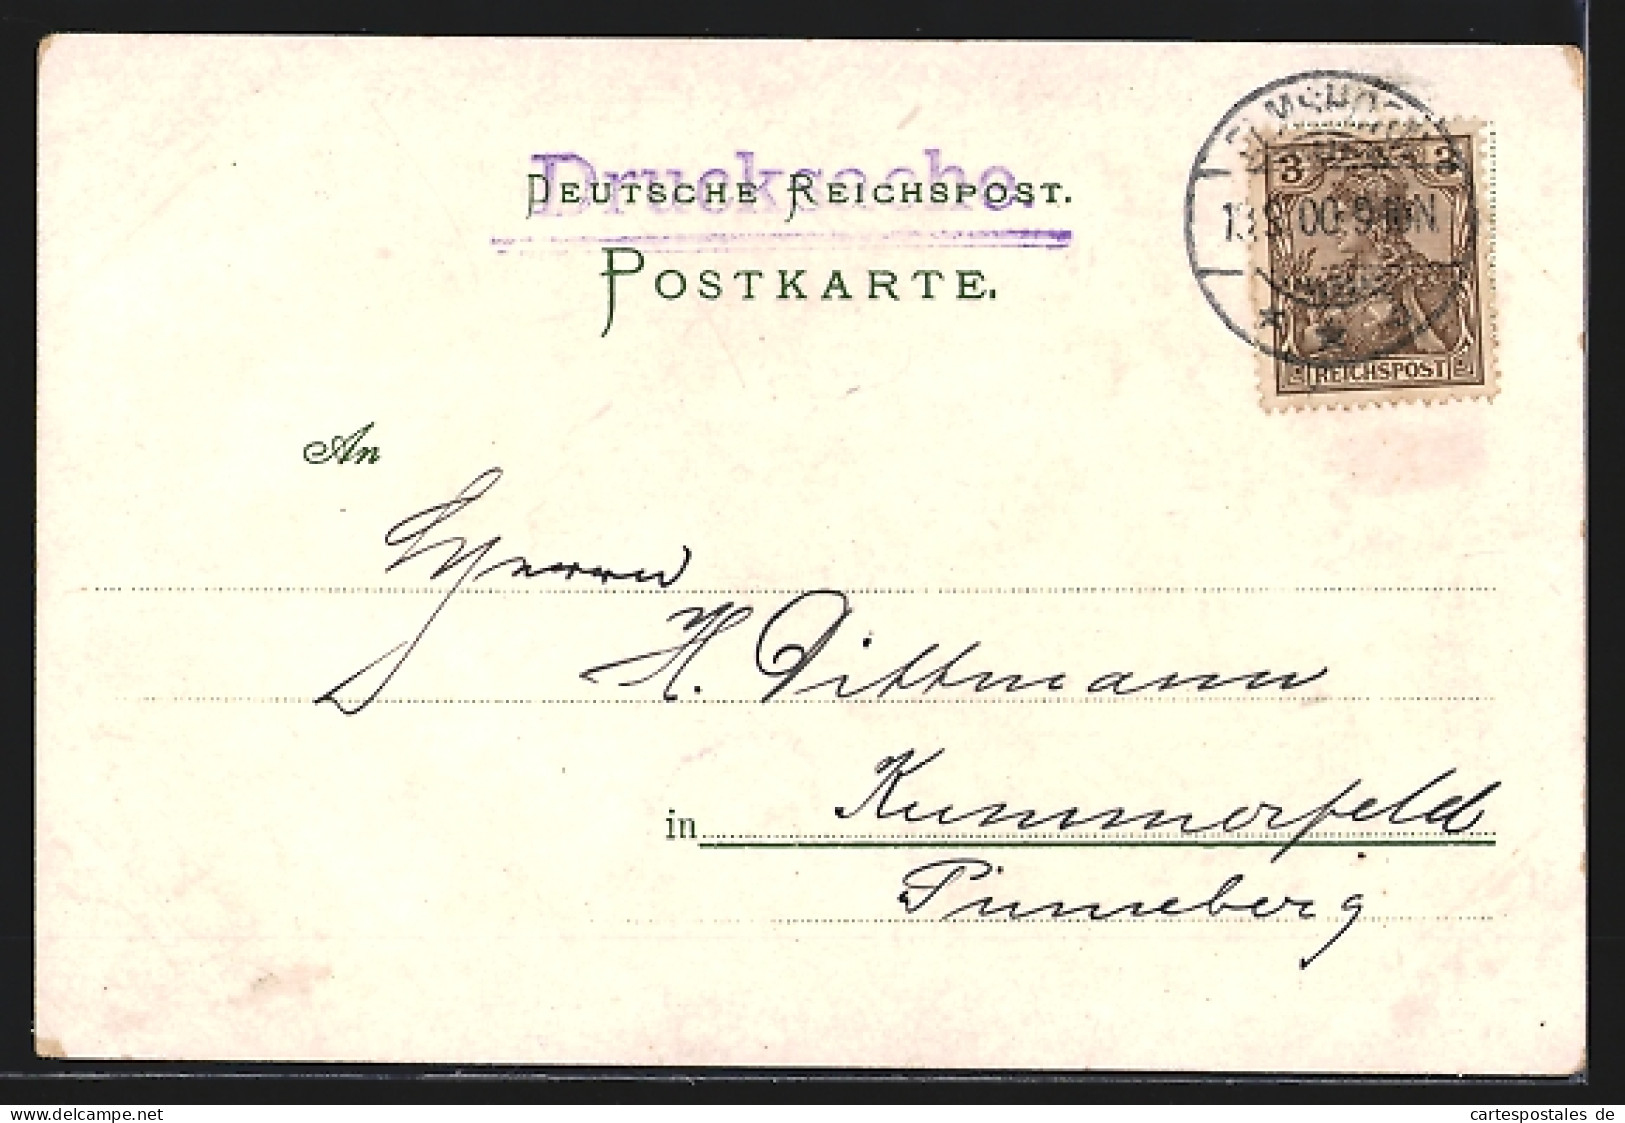 Drucksache.
DEUTSCHE REICHSPOST.
POSTKARTE.
ELMSHORN
00 9-10N.
3 3
REICHSPOST
An
Herrn
H. Dittmann
in Kummerfeld
Pinneberg
delcampe.net
cartespostales de